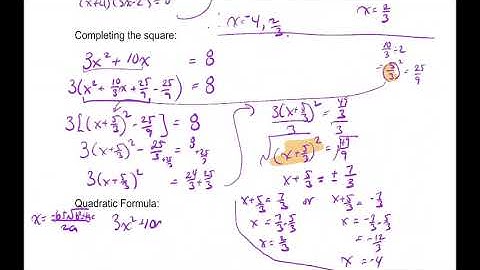 (x+4)(3x-2)=0
x=-4, 2/3
x=2/3
Completing the square:
3x²+10x = 8
3(x²+10/3x+25/9-25/9) = 8
3[(x+5/3)²-25/9] = 8
3(x+5/3)²-25/3+25/3 = 8+25/3
3(x+5/3)² = 24/3+25/3
10/3÷2
=(5/3)²=25/9
3(x+5/3)²/3 = 49/3/3
√(x+5/3)² = √49/9
x+5/3 = ±7/3
x+5/3=7/3 or x+5/3=-7/3
x=7/3-5/3 x=-7/3-5/3
x=2/3 =-12/3
x=-4
Quadratic Formula:
x=-b±√b²-4ac/2a 3x²+10